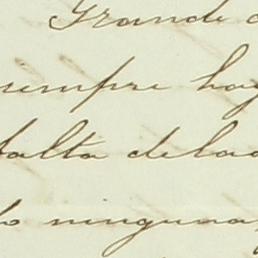 Grande
siempre hay
falta de la
ninguna